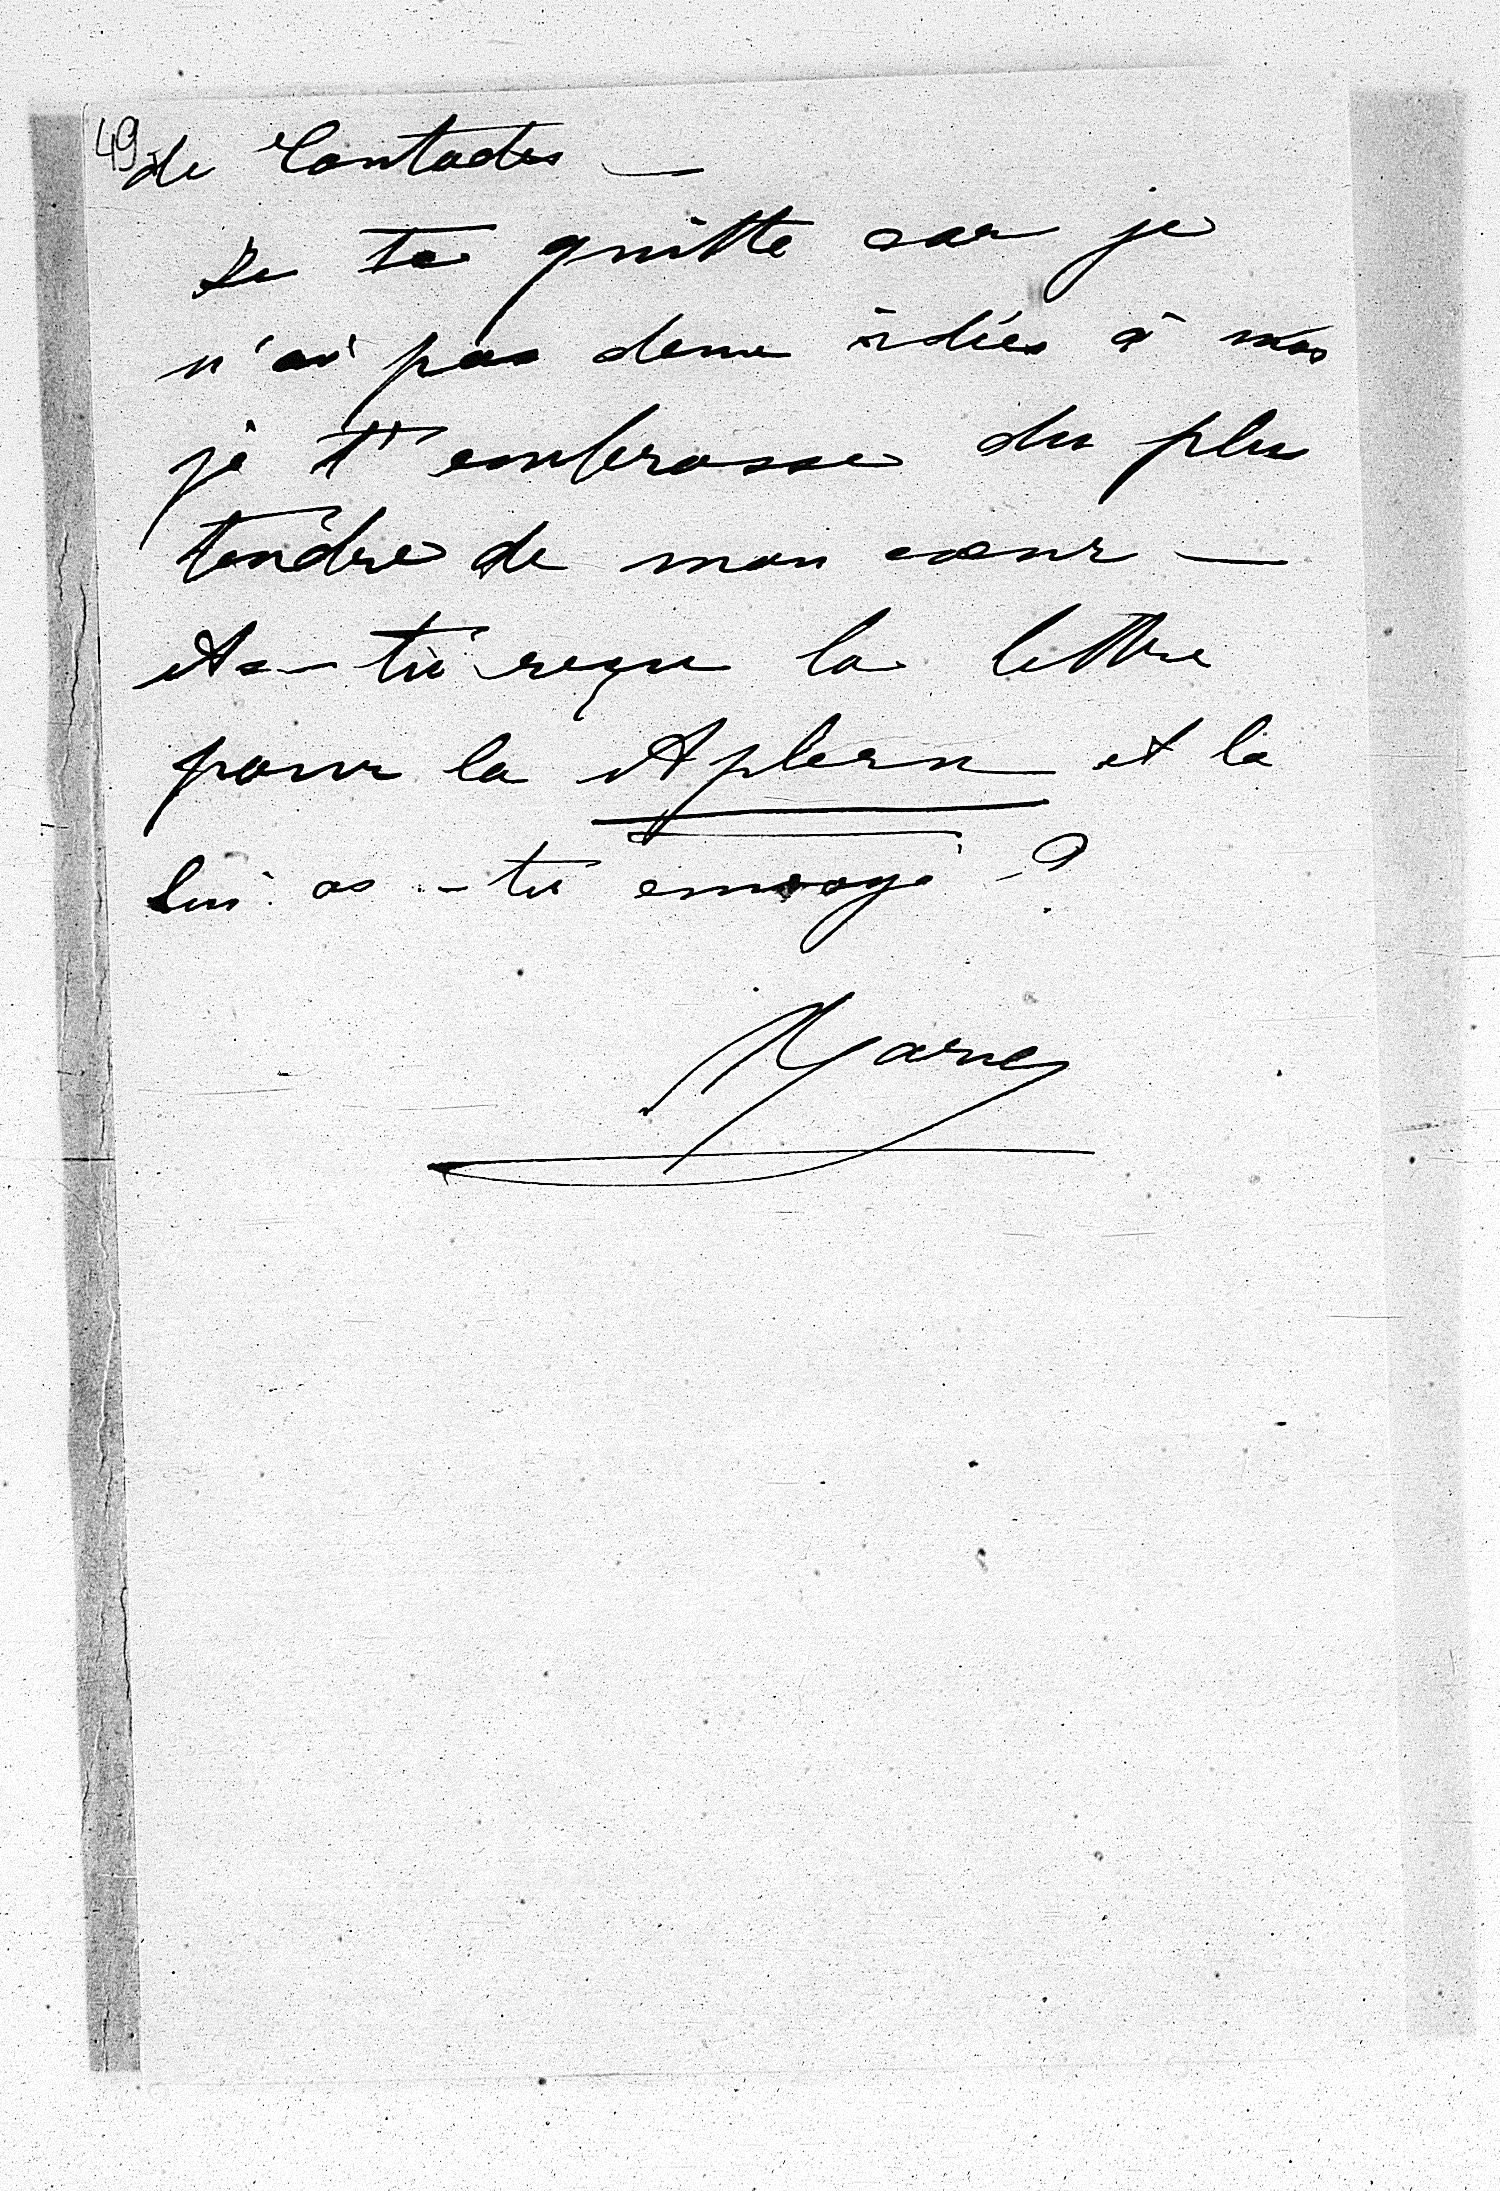 49
de Contades —
Je te quitte car je
n'ai pas deux idées à moi
je t'embrasse du plus
tendre de mon cœur —
As-tu reçu la lettre
pour la et la
lui as-tu envoyé - ?